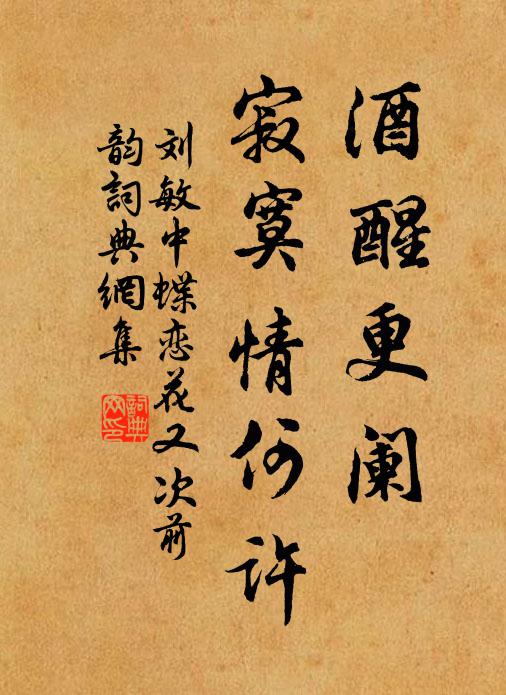 酒醒更阑
寂寞情何许
刘敏中蝶恋花又次前
韵詞典網集
詞典网印